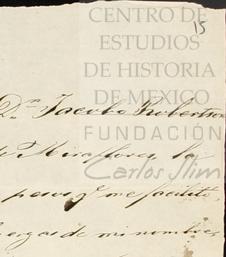 CENTRO DE
15
ESTUDIOS
DE HISTORIA
DE MEXICO
Dn Jacobo Robertson
FUNDACIÓN
de Miraflores, la
Carlos Slim
pesos q. me facilitó,
de mi nombre